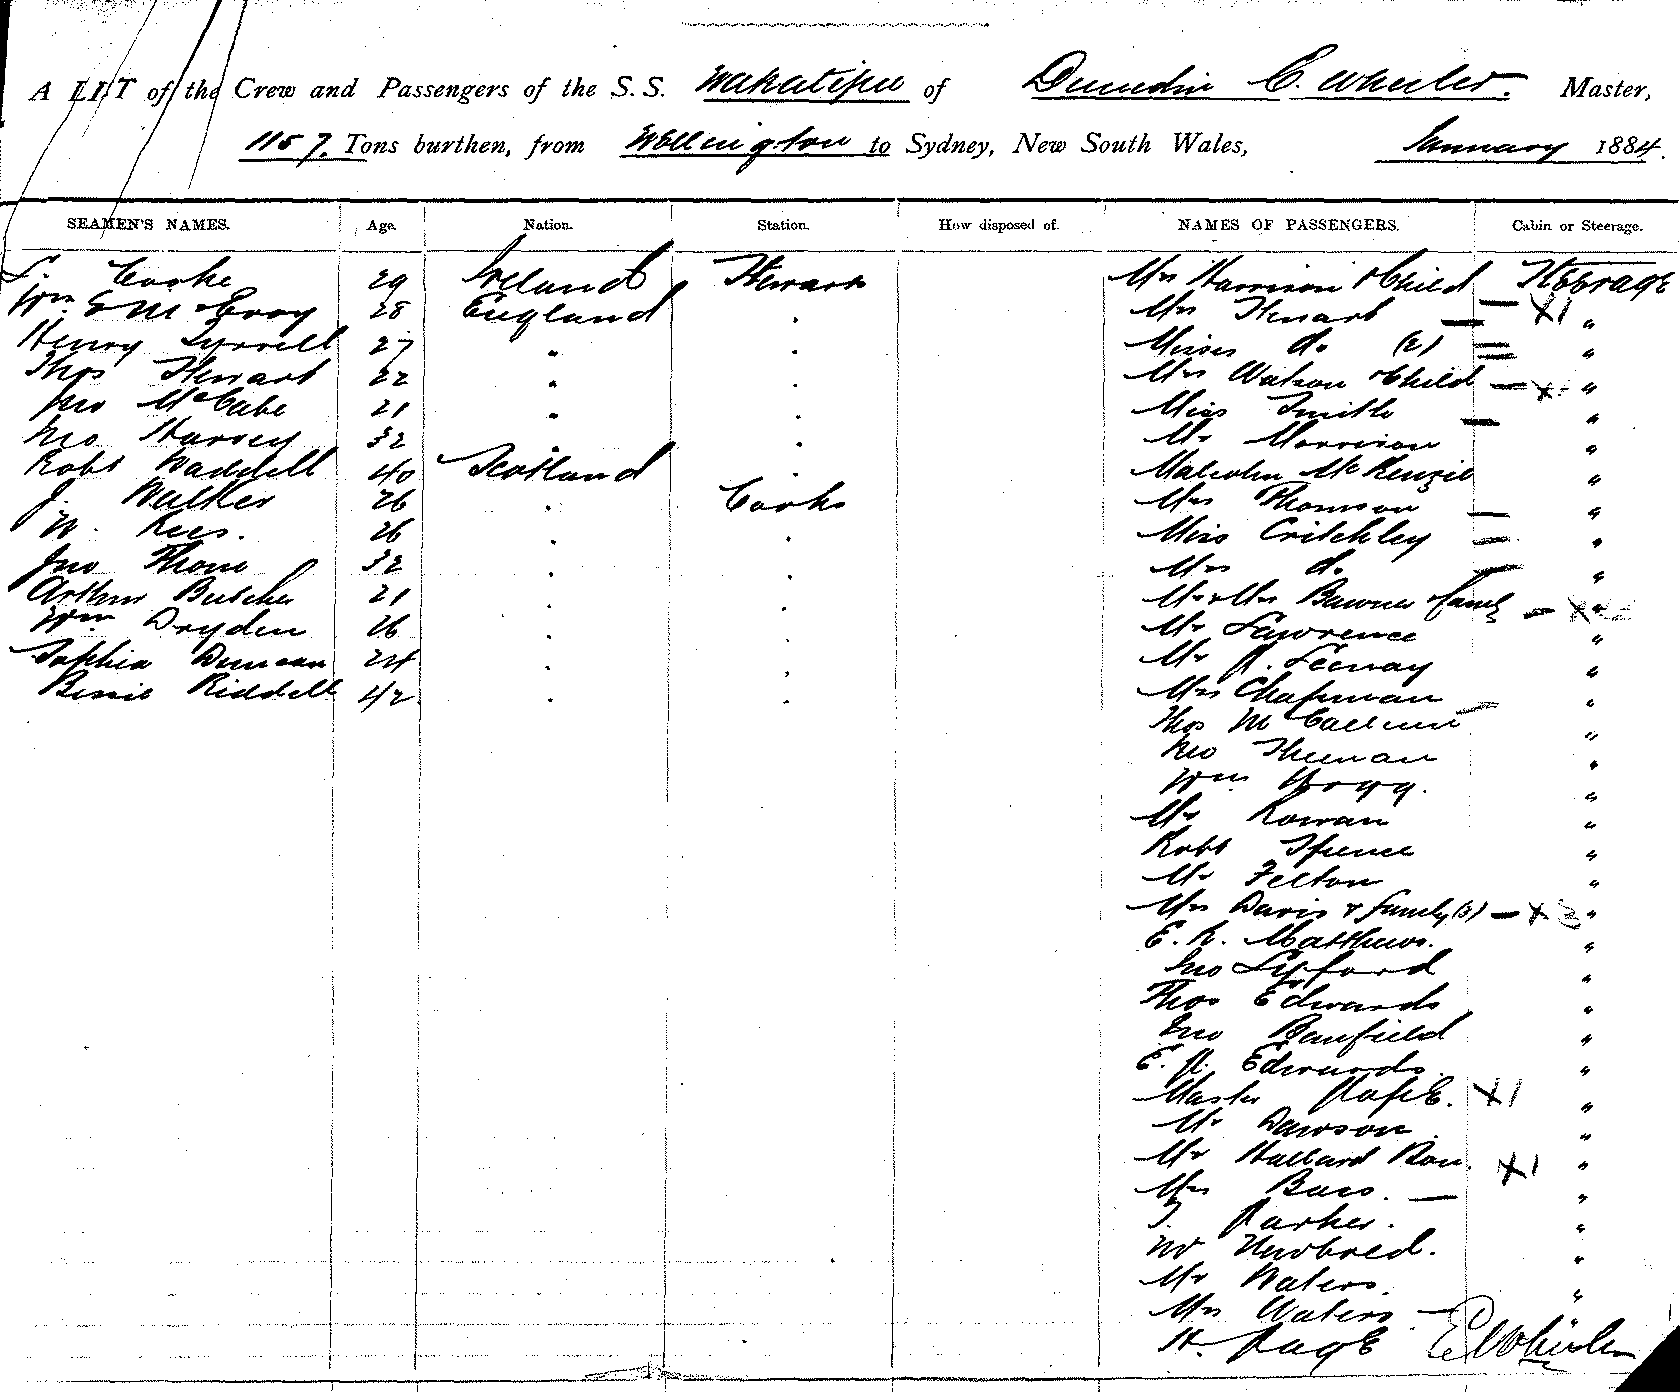 A LIST of the Crew and Passengers of the S.S. Wakatipu of Dunedin E. Wheeler. Master,
1157. Tons burthen, from Wellington to Sydney, New South Wales, January 1884.
SEAMEN'S NAMES. Age. Nation. Station. How disposed of. NAMES OF PASSENGERS. Cabin or Steerage.
Cooke 29 Ireland Steward Mrs Harrison & Child Steerage
Wm. E McEvoy 28 England . Mrs Stewart X1 "
Henry Tyrrell 27 " . Misses do (2) "
Thos Stewart 22 " . Mrs Watson & Child X "
Jno McCabe 21 " . Miss Smith "
Geo Harvey 32 . Mr Morrison "
Robt Waddell 40 Scotland . Malcolm McKenzie "
J. Walker 26 . Cooks Mrs Thomson "
W. Rees. 26 . . Miss Critchley "
Jno Thom 32 . . Mrs do "
Arthur Butcher 21 . . Mr & Mrs & family X "
Wm Dryden 26 . . Mr Lawrence "
Sophia Duncan 24 . . Mr P. Feenay "
Bessie Riddell 42 . . Mrs Chapman "
Thos McCallum "
Geo Theenan "
Wm Hogg. "
Mr Rowan "
Robt Spence "
Mr Felton "
Mrs Davis & family (3) X 3 "
E. R. Matthews. "
Jno "
Thos Edwards "
Jno Banfield "
E. P. Edwards "
Master Pope. X1 "
Mr Dawson "
Mr Hallard X1 "
Mrs Bass. "
T. Parker. "
W Newbred. "
Mr Waters. "
Mrs Waters
H. Page E Wheeler